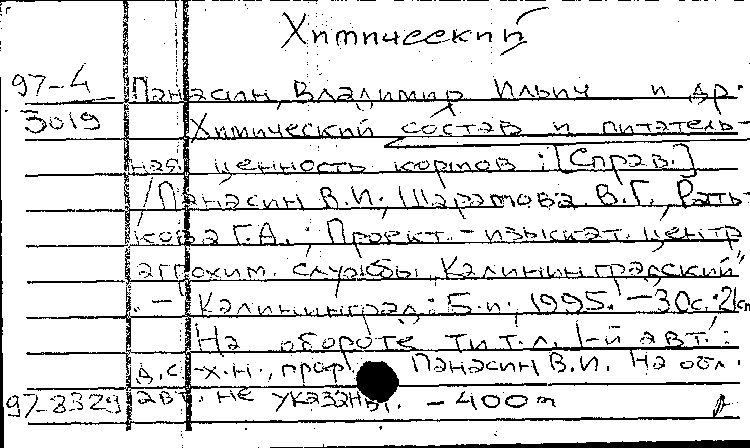 Химический
97-4 Панасин, Владимир Ильич и др.
3019 Химический состав и питатель-
ная ценность кормов : [Справ.]
/ Панасин В.И., Шарамова В.Г., Рать-
кова Г.А. ; Проект.-изыскат. центр
агрохим. службы "Калининградский"
. — Калининград : Б.и., 1995. — 30с. ; 21см
На обороте тит.л. 1-й авт. :
д.с.-х.н., проф. Панасин В.И. На обл.
97-8329 авт. не указаны. — 400